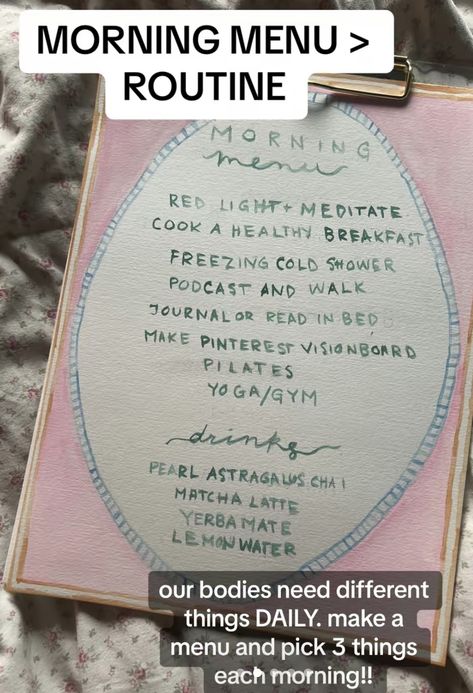 MORNING MENU >
ROUTINE
MORNING
menu
RED LIGHT + MEDITATE
COOK A HEALTHY BREAKFAST
FREEZING COLD SHOWER
PODCAST AND WALK
JOURNAL OR READ IN BED
MAKE PINTEREST VISIONBOARD
PILATES
YOGA/GYM
drinks
PEARL ASTRAGALUS CHAI
MATCHA LATTE
YERBA MATE
LEMON WATER
our bodies need different
things DAILY. make a
menu and pick 3 things
each morning!!